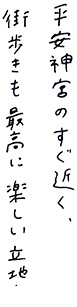 平安神宮のすぐ近く、
街歩きも最高に楽しい立地